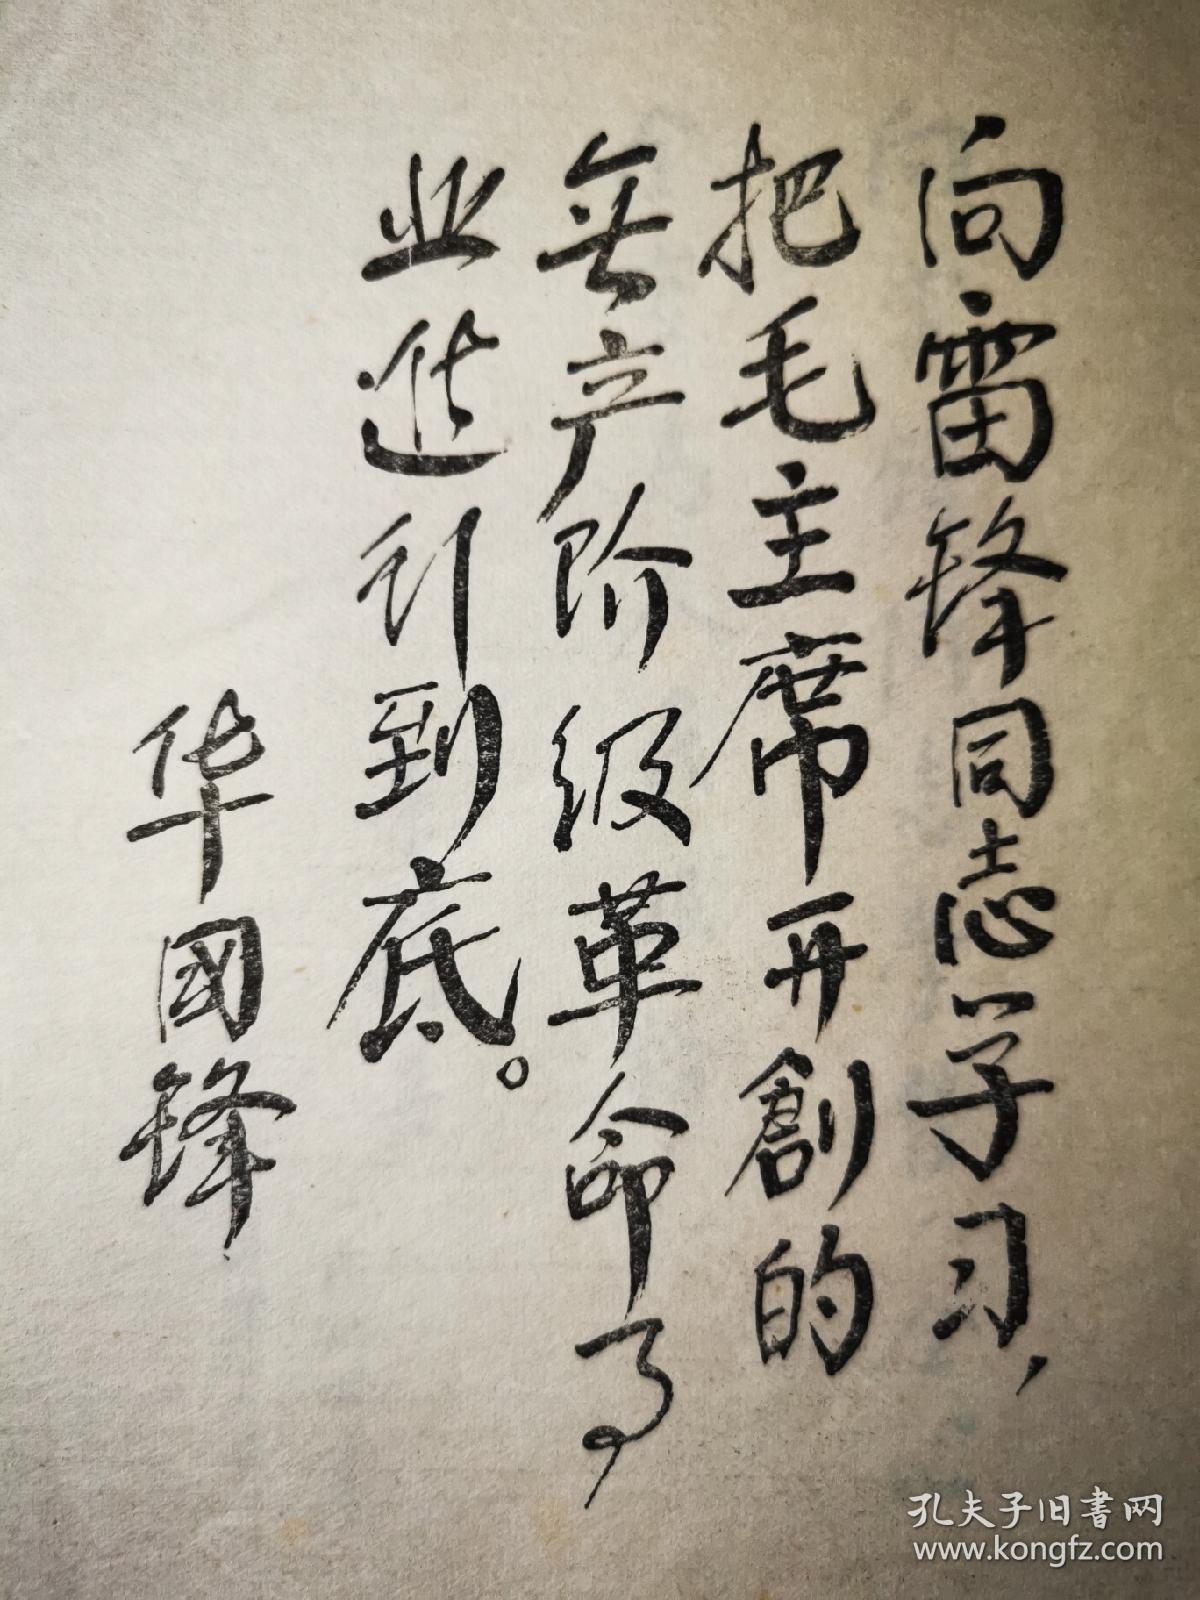 向雷锋同志学习，
把毛主席开創的
無产阶级革命事
业進行到底。
华國锋
孔夫子旧书网
www.kongfz.com